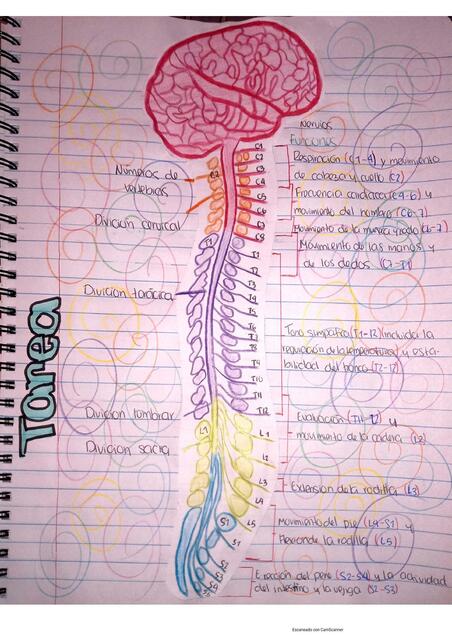 Tarea
Nervios
Funciones
Números de
vertebras
División cervical
División torácica
División lumbar
División sacra
Respiración (C1-4) y movimiento
de cabeza y cuello (C2)
Frecuencia cardiaca (C4-6) y
movimiento del hombro (C6-7)
Movimiento de la muñeca y codo (C6-7)
Movimiento de las manos y
de los dedos (C7-T1)
Tono simpático (T1-12) incluida la
regulación de la temperatura y esta-
bilidad del tronco (T2-12)
Eyaculación (T11-L2) y
movimiento de la cadera (L2)
Extension de la rodilla (L3)
Movimiento del pie (L4-S1) y
flexion de la rodilla (L5)
Erección del pene (S2-S4) y la actividad
del intestino y la vejiga (S2-S3)
C1
C2
C3
C4
C5
C6
C7
C8
T1
T2
T3
T4
T5
T6
T7
T8
T9
T10
T11
T12
L1
L1
L2
L3
L4
L5
S1
S1
Escaneado con CamScanner